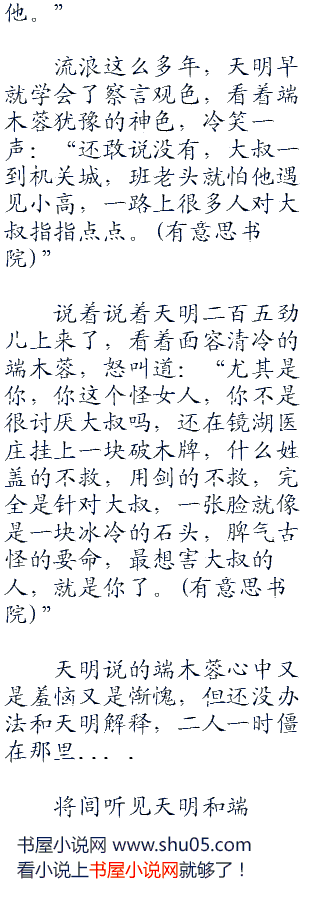 他。”
流浪这么多年，天明早
就学会了察言观色，看着端
木蓉犹豫的神色，冷笑一
声：“还敢说没有，大叔一
到机关城，班老头就怕他遇
见小高，一路上很多人对大
叔指指点点。(有意思书
院)”
说着说着天明二百五劲
儿上来了，看着面容清冷的
端木蓉，怒叫道：“尤其是
你，你这个怪女人，你不是
很讨厌大叔吗，还在镜湖医
庄挂上一块破木牌，什么姓
盖的不救，用剑的不救，完
全是针对大叔，一张脸就像
是一块冰冷的石头，脾气古
怪的要命，最想害大叔的
人，就是你了。(有意思书
院)”
天明说的端木蓉心中又
是羞恼又是惭愧，但还没办
法和天明解释，二人一时僵
在那里....
将闾听见天明和端
书屋小说网 www.shu05.com
看小说上书屋小说网就够了！